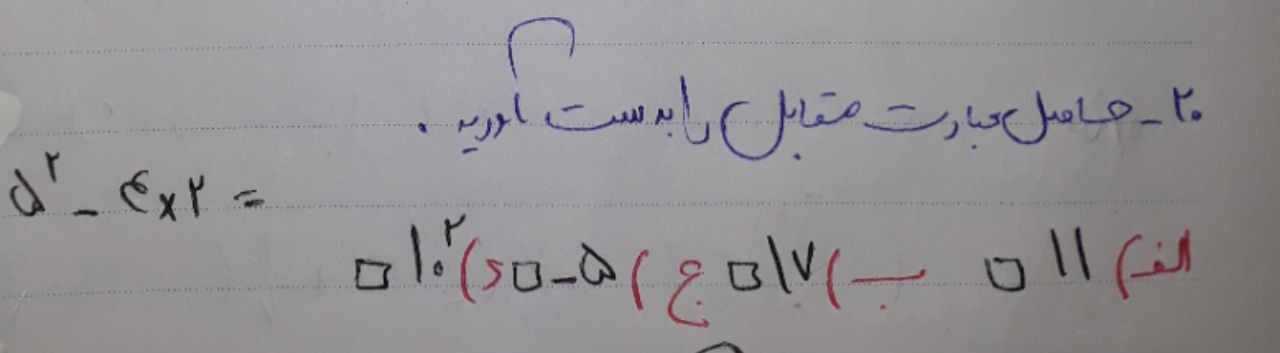 ۲۰- حاصل عبارت مقابل را بدست آورید.
۵² - ۴×۲ =
الف) ۱۱ □ ب) ۱۷ □ ج) ۵- □ د) ۱۰² □